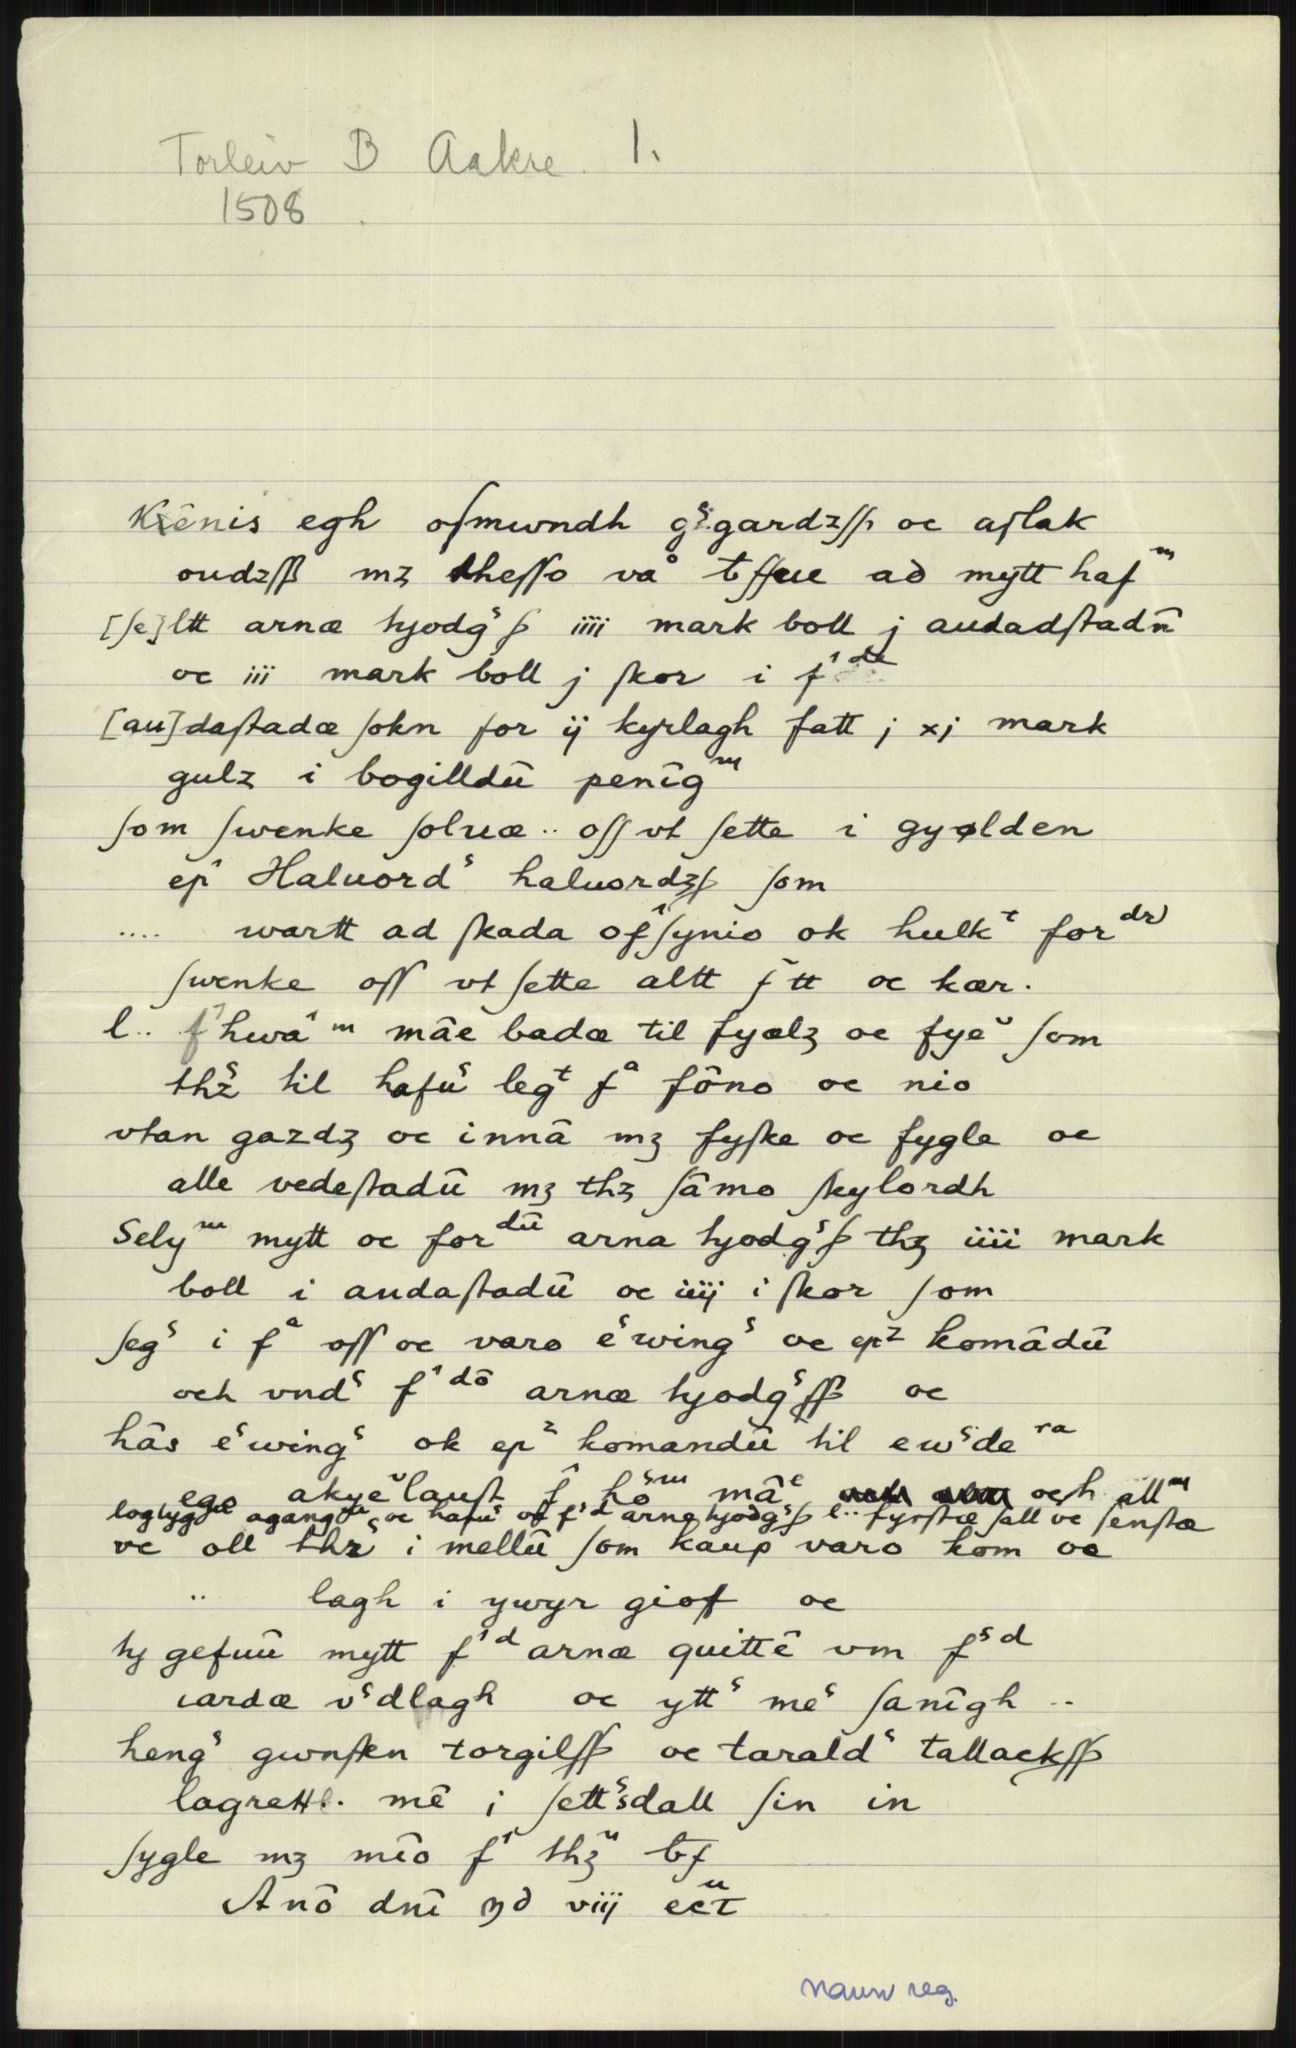 Torleiv B Aakre. 1.
1508
Kēnis egh osmwndh gˢgardzſſ oc aſlak
oudzſſ mz theſſo vaͦ bſſue ad mytt hafᵐ
[ſe]ltt arnæ hjodgˢſ iiii mark boll j audadſtadū
oc iii mark boll j ſkor i fⁱᵈᵉ
[au]daſtadæ ſokn for ij kyrlagh fatt j xj mark
gulz i bogilldū penīgᵐ
ſom ſwenke ſoluæ .. oſſ vt ſette i gyolden
ep̄ Haluordˢ haluordzſ ſom
.... wartt ad ſkada ofⁱſynio ok hulkᵗ forᵈʳ
ſwenke oſſ vt ſette altt ſⁱtt oc kær.
l.. fⁱhwaⁱᵐ māe badæ til fyælz oc fyeᵛ ſom
thzˢ til hafūˢ legᵗ fᵃ fōno oc nio
vtan gazdz oc innā mz fyſke oc fygle oc
alle vedeſtadū mz thz ſāmo ſkylordh
Selyᵐ mytt oc forᵈᵘ̄ arna hjodgˢſ thz iiii mark
boll i audaſtadū oc iiij i ſkor ſom
ſegˢ i fᵃ oſſ oc varo eˢwingˢ oc epᶻ komādū
och vndˢ fⁱᵈᵒ̄ arnæ hjodgˢſſ oc
hās eˢwingˢ ok epᶻ komandū til ewˢdeʳᵃ
ego akyēᵛlauſt f̄ hōˢᵐ māᵉ och allᵐ
loglyg agang oc hafuˢ of fⁱᵈ arne hjodgˢſ l.. fyrſtæ ſall oc ſenſtæ
oc oll thzˢ i mellū ſom kaup varo kom oc
.. lagh i ywyr giof oc
hj gefuū mytt fⁱᵈ arnæ quittē vm fˢᵈ
iardæ vˢdlagh oc yttˢ meˢ ſanīgh ..
hengˢ gwnſten torgilſſ oc taraldˢ tallackſſ
lagrettl. mē i ſettˢdall ſin in
ſygle mz mīo fⁱ thzᵘ bf
Anō dnī md viij ecᵘt
navn reg.